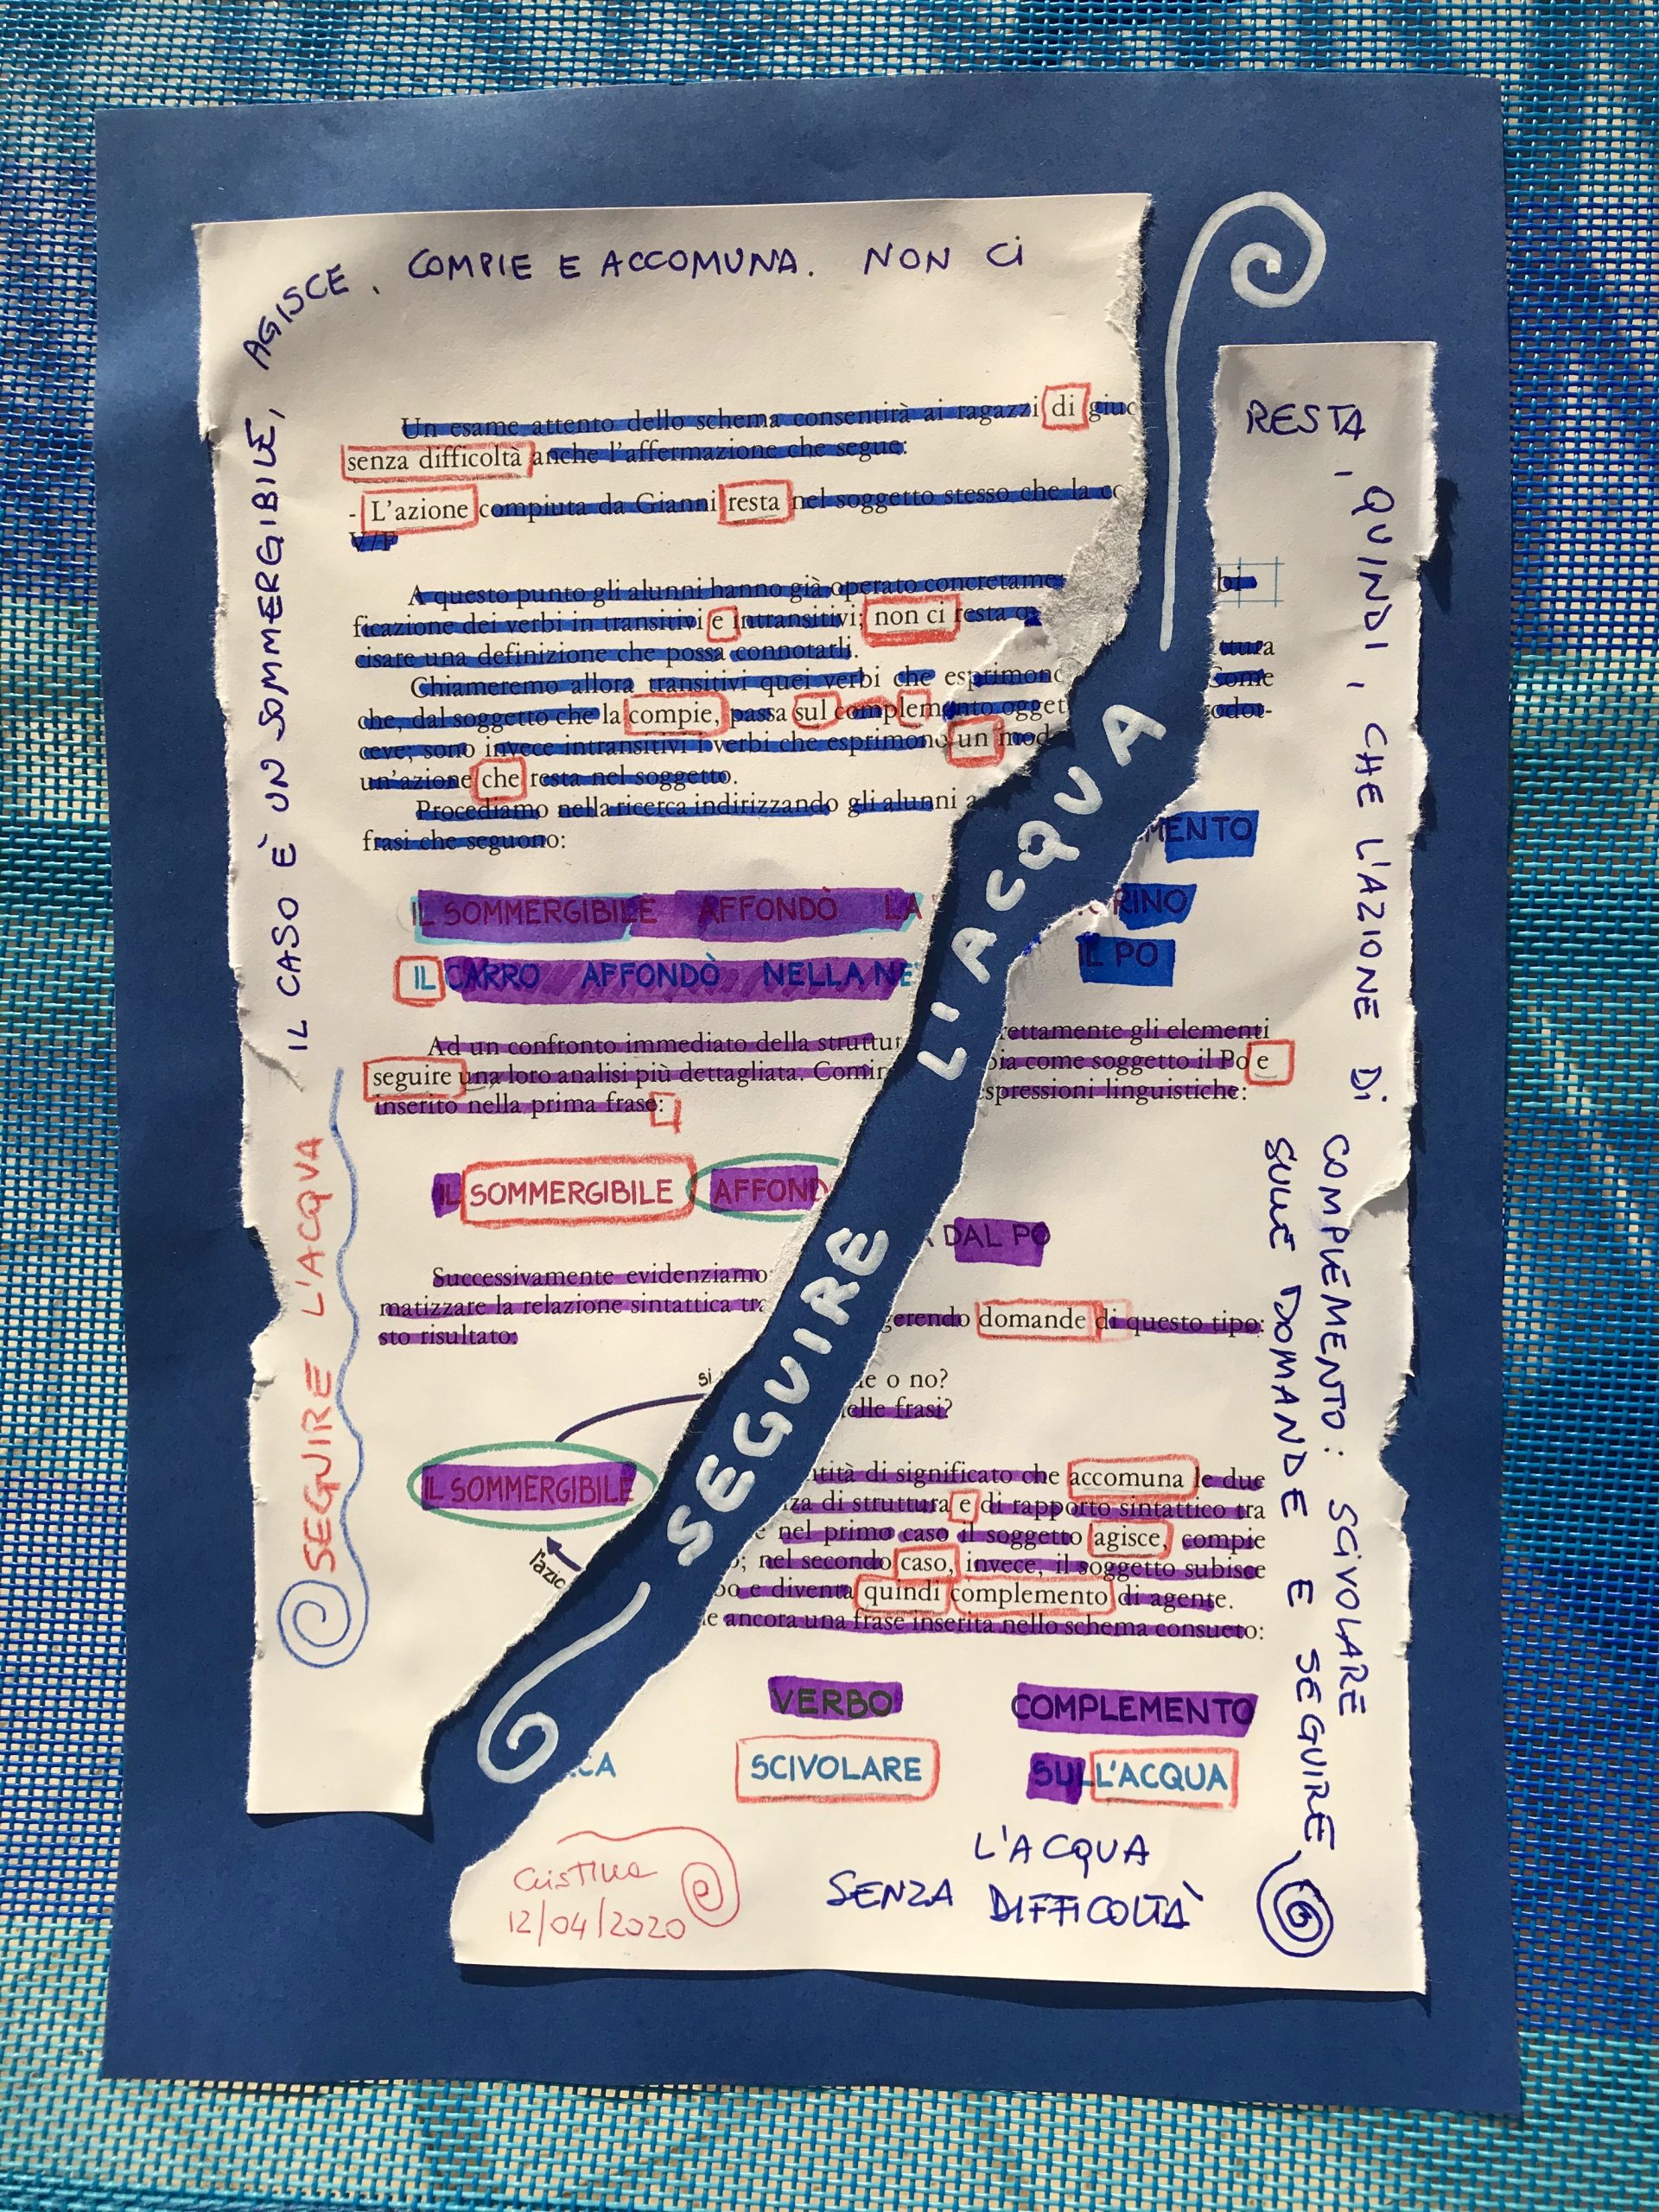 IL CASO È UN SOMMERGIBILE, AGISCE, COMPIE E ACCOMUNA. NON CI
RESTA, QUINDI, CHE L'AZIONE DI
COMPLEMENTO: SCIVOLARE
SULLE DOMANDE E SEGUIRE
L'ACQUA
SENZA DIFFICOLTÀ
SEGUIRE L'ACQUA
SEGUIRE L'ACQUA
Un esame attento dello schema consentirà ai ragazzi di giud
senza difficoltà anche l'affermazione che segue:
- L'azione compiuta da Gianni resta nel soggetto stesso che la co
V/F
A questo punto gli alunni hanno già operato concretamen
bi
ficazione dei verbi in transitivi e intransitivi; non ci resta
cisare una definizione che possa connotarli.
ttura
Chiameremo allora transitivi quei verbi che esprimono
Come
che, dal soggetto che la compie, passa sul complemento ogget
odot-
ceve; sono invece intransitivi i verbi che esprimono un mod
un'azione che resta nel soggetto.
Procediamo nella ricerca indirizzando gli alunni a
frasi che seguono:
MENTO
IL SOMMERGIBILE AFFONDÒ LA
RINO
IL CARRO AFFONDÒ NELLA NE
IL PO
Ad un confronto immediato della struttur
rettamente gli elementi
seguire una loro analisi più dettagliata. Comin
bia come soggetto il Po e
inserito nella prima frase:
espressioni linguistiche:
IL SOMMERGIBILE AFFOND
A DAL PO
Successivamente evidenziamo
matizzare la relazione sintattica tra
gerendo domande di questo tipo:
sto risultato:
si
le o no?
elle frasi?
IL SOMMERGIBILE
l'azio
tità di significato che accomuna le due
za di struttura e di rapporto sintattico tra
e nel primo caso il soggetto agisce, compie
o; nel secondo caso, invece, il soggetto subisce
bo e diventa quindi complemento di agente.
le ancora una frase inserita nello schema consueto:
VERBO COMPLEMENTO
CA SCIVOLARE SULL'ACQUA
Cristina
12/04/2020